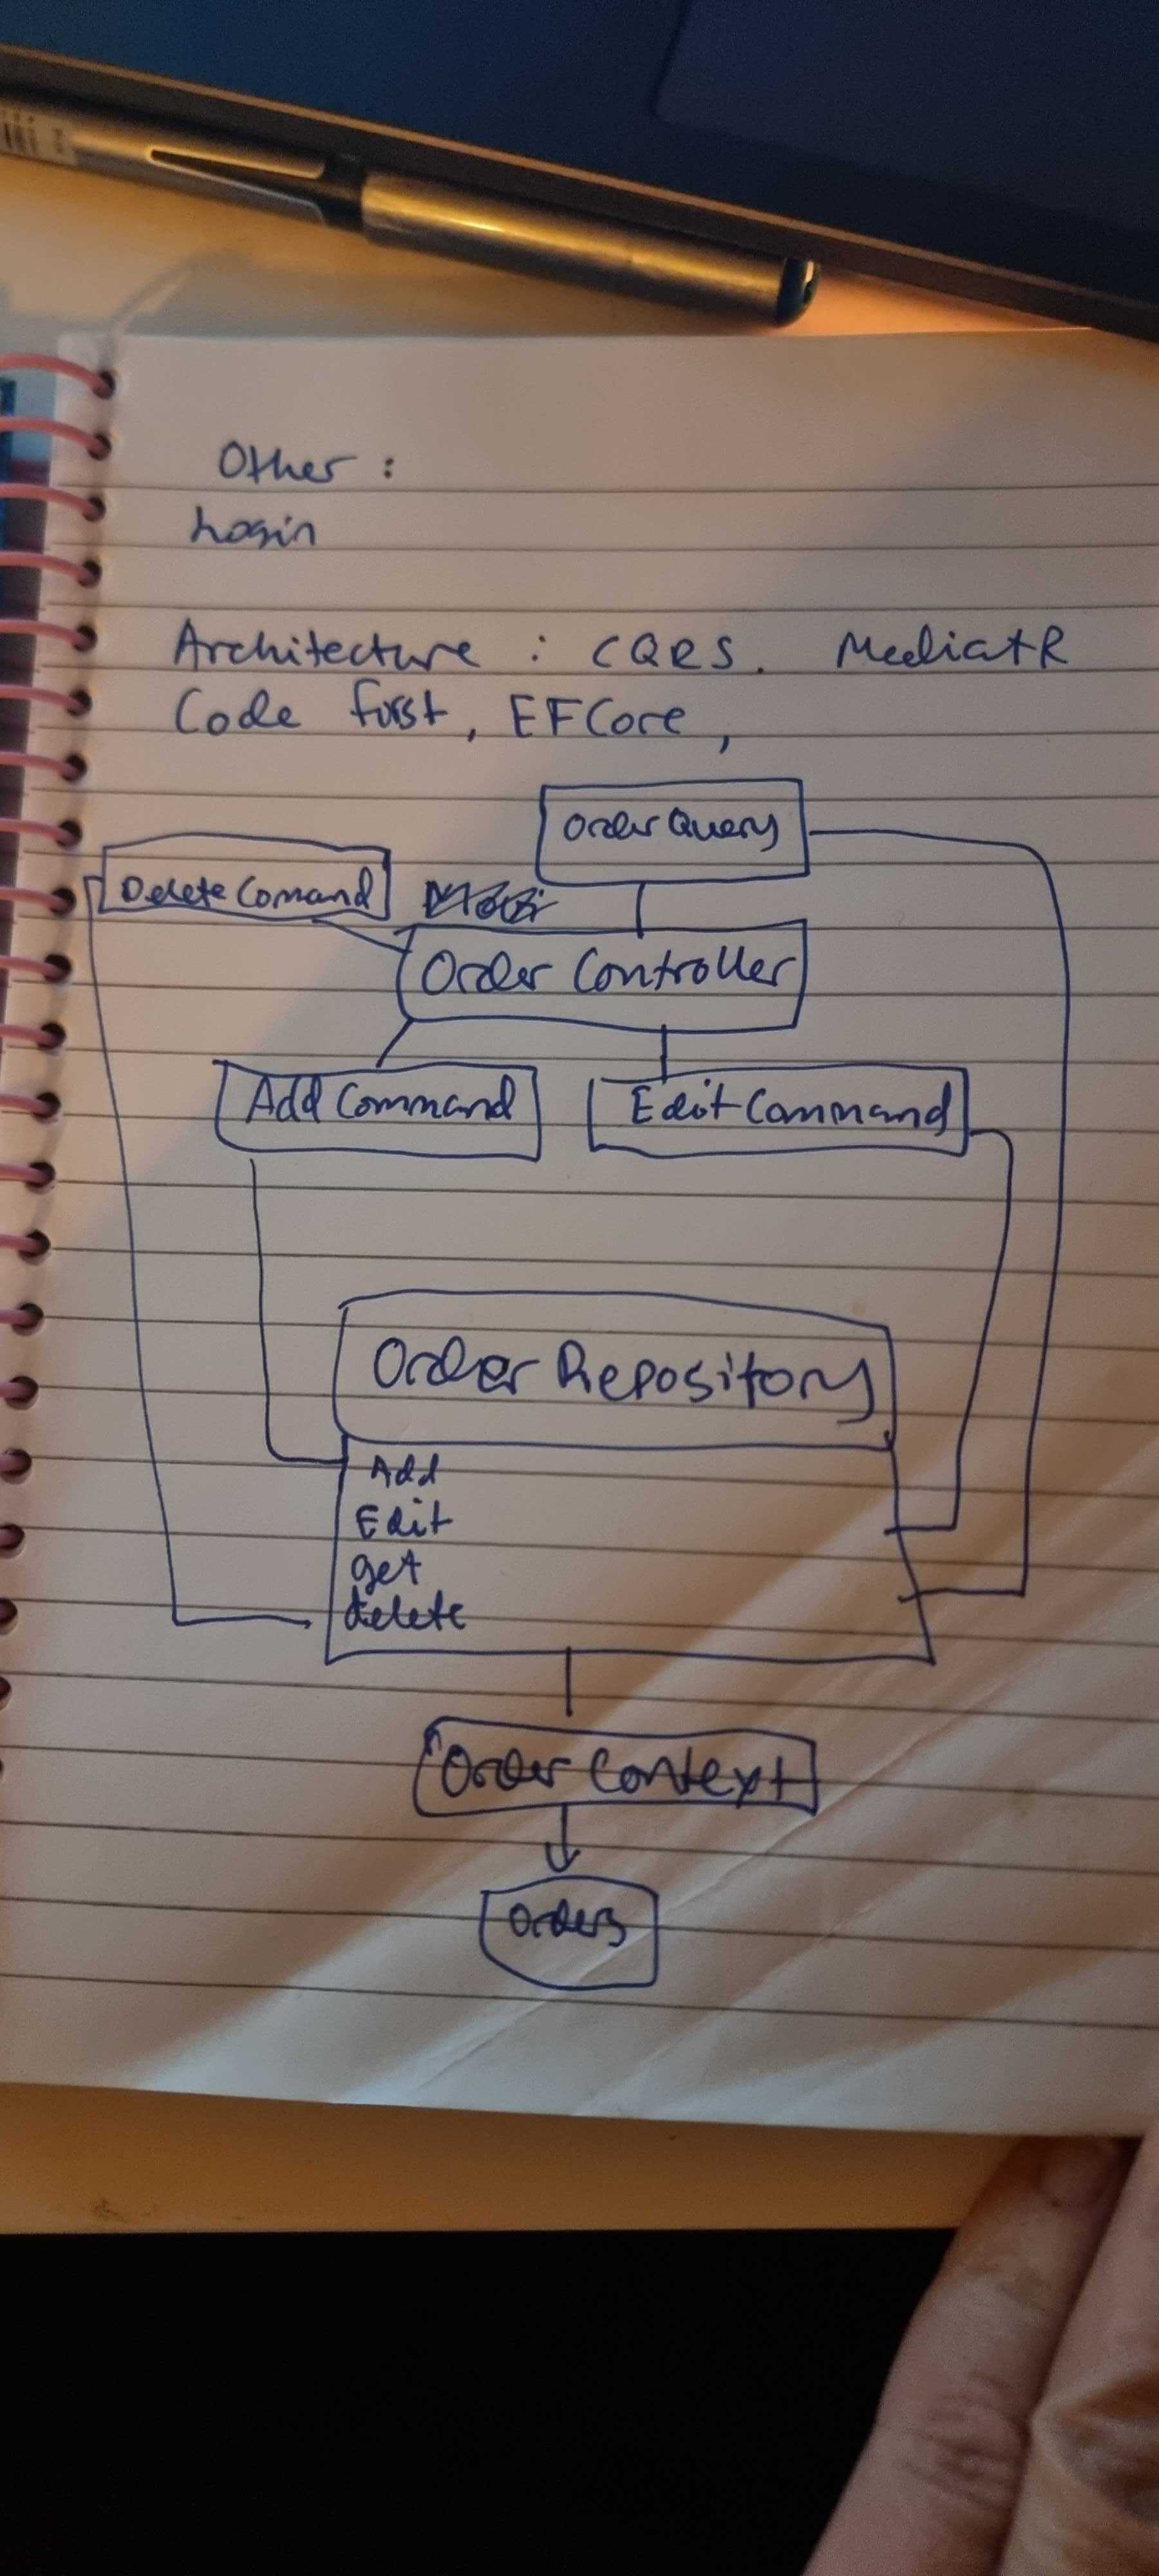 Other :
Login
Architecture : CQRS. MediatR
Code first, EFCore,
Order Query
Delete Comand
Order Controller
Add Command
Edit Command
Order Repository
Add
Edit
get
delete
Order Context
Orders